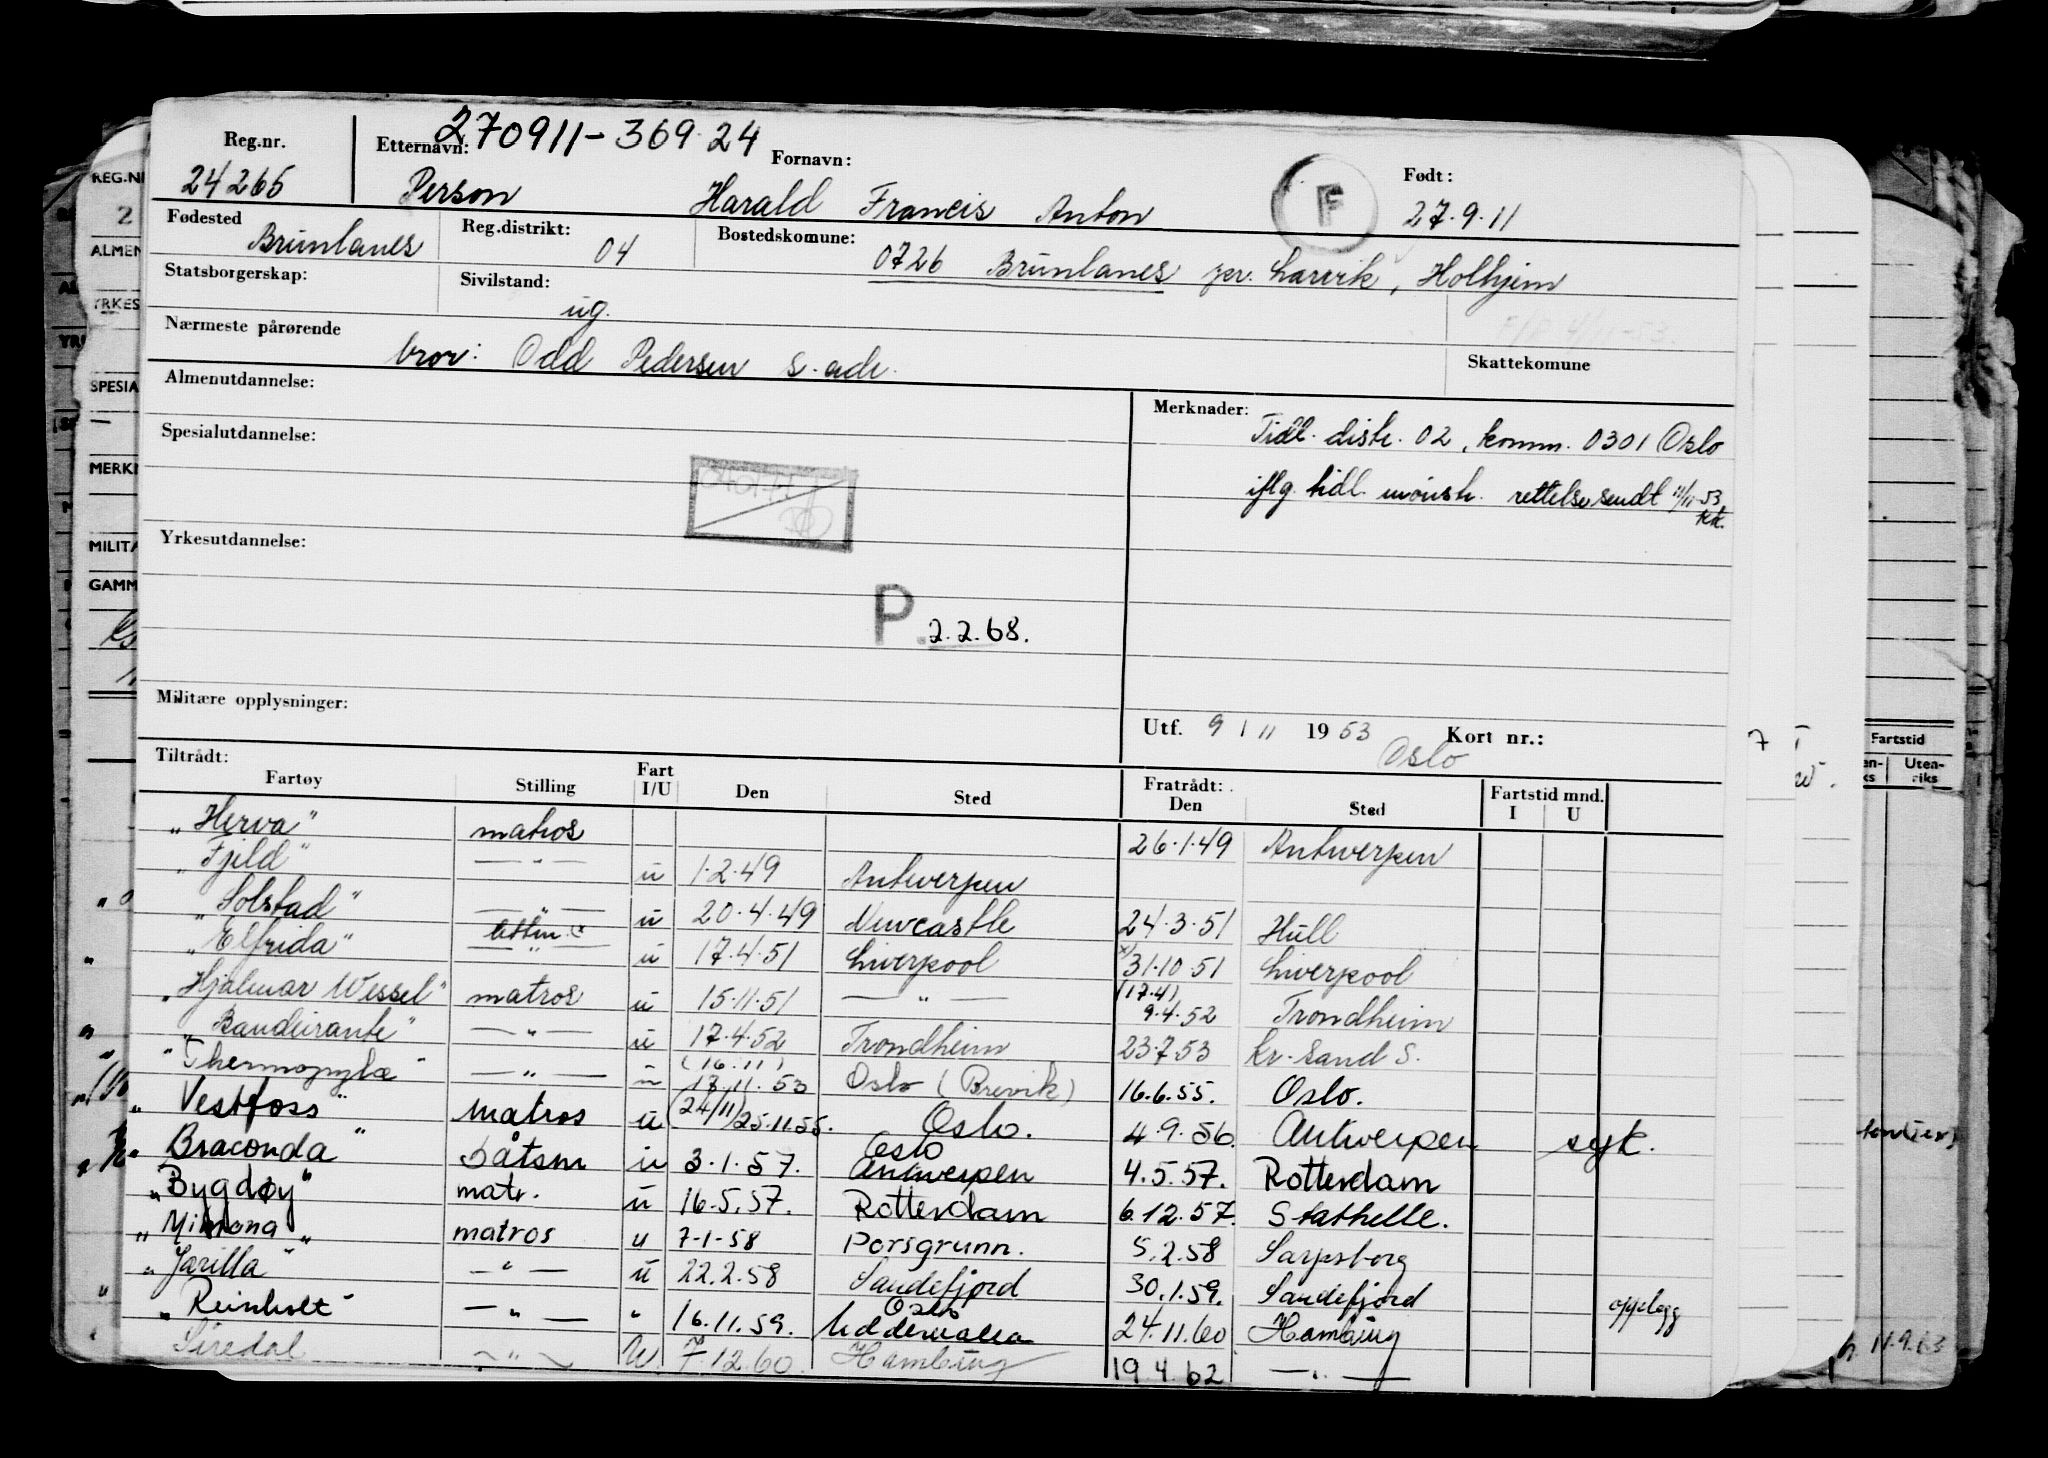 270911-369 24
Reg.nr. Etternavn: Fornavn: Født:
24265 Person Harald Francis Anton F 27.9.11
Fødested Reg.distrikt: Bostedskomune:
Brunlanes 04 0726 Brunlanes pr. Larvik, Holhjem
Statsborgerskap: Sivilstand:
ug.
Nærmeste pårørende Skattekomune
bror: Odd Pedersen s. adr.
Almenutdannelse: Merknader:
Tidl. distr. 02, komm. 0301 Oslo
Spesialutdannelse:
iflg. tidl. mønstr. rettelse sendt 11/11-53
Yrkesutdannelse:
P. 2.2.68.
Militære opplysninger:
Utf. 9 / 11 1953 Kort nr.:
Oslo
Tiltrådt: Fratrådt:
Fartøy Stilling Fart I/U Den Sted Den Sted Fartstid mnd. I U
"Herva" matros 26.1.49 Antwerpen
"Fjeld" —"— u 1.2.49 Antwerpen
"Solstad" —"— u 20.4.49 Newcastle 24.3.51 Hull
"Elfrida" —"— u 17.4.51 Liverpool x) 31.10.51 Liverpool
"Hjalmar Wessel" matros u 15.11.51 —"— (17.4) 9.4.52 Trondheim
"Bandeirante" —"— u 17.4.52 Trondheim 23.7.53 Kr.sand S.
"Thermopylæ" —"— u (16.11) 18.11.53 Oslo (Brevik) 16.6.55. Oslo.
"Vestfoss" Matros u (24/11) 25.11.55. Oslo. 4.9.56. Antwerpen syk.
"Braconda" båtsm u 3.1.57. Oslo Antwerpen 4.5.57. Rotterdam
"Bygdøy" matr. u 16.5.57. Rotterdam 6.12.57. Stathelle.
"Mimona" matros u 7-1-58 Porsgrunn. 5.2.58 Sarpsborg
"Jarilla" —"— u 22.2.58 Sandefjord 30.1.59. Sandefjord opplagg
"Reinholt" —"— " 16.11.59. Oslo Uddevalla 24.11.60 Hamburg
Siredal —"— U. 7.12.60. Hamburg 19.4.62 —"—
REG.NR
2
ALMEN
YRKES
SPESIA
MERKN
MILITÆ
GAMM
Fartstid
Uten-
riks
11.9.63